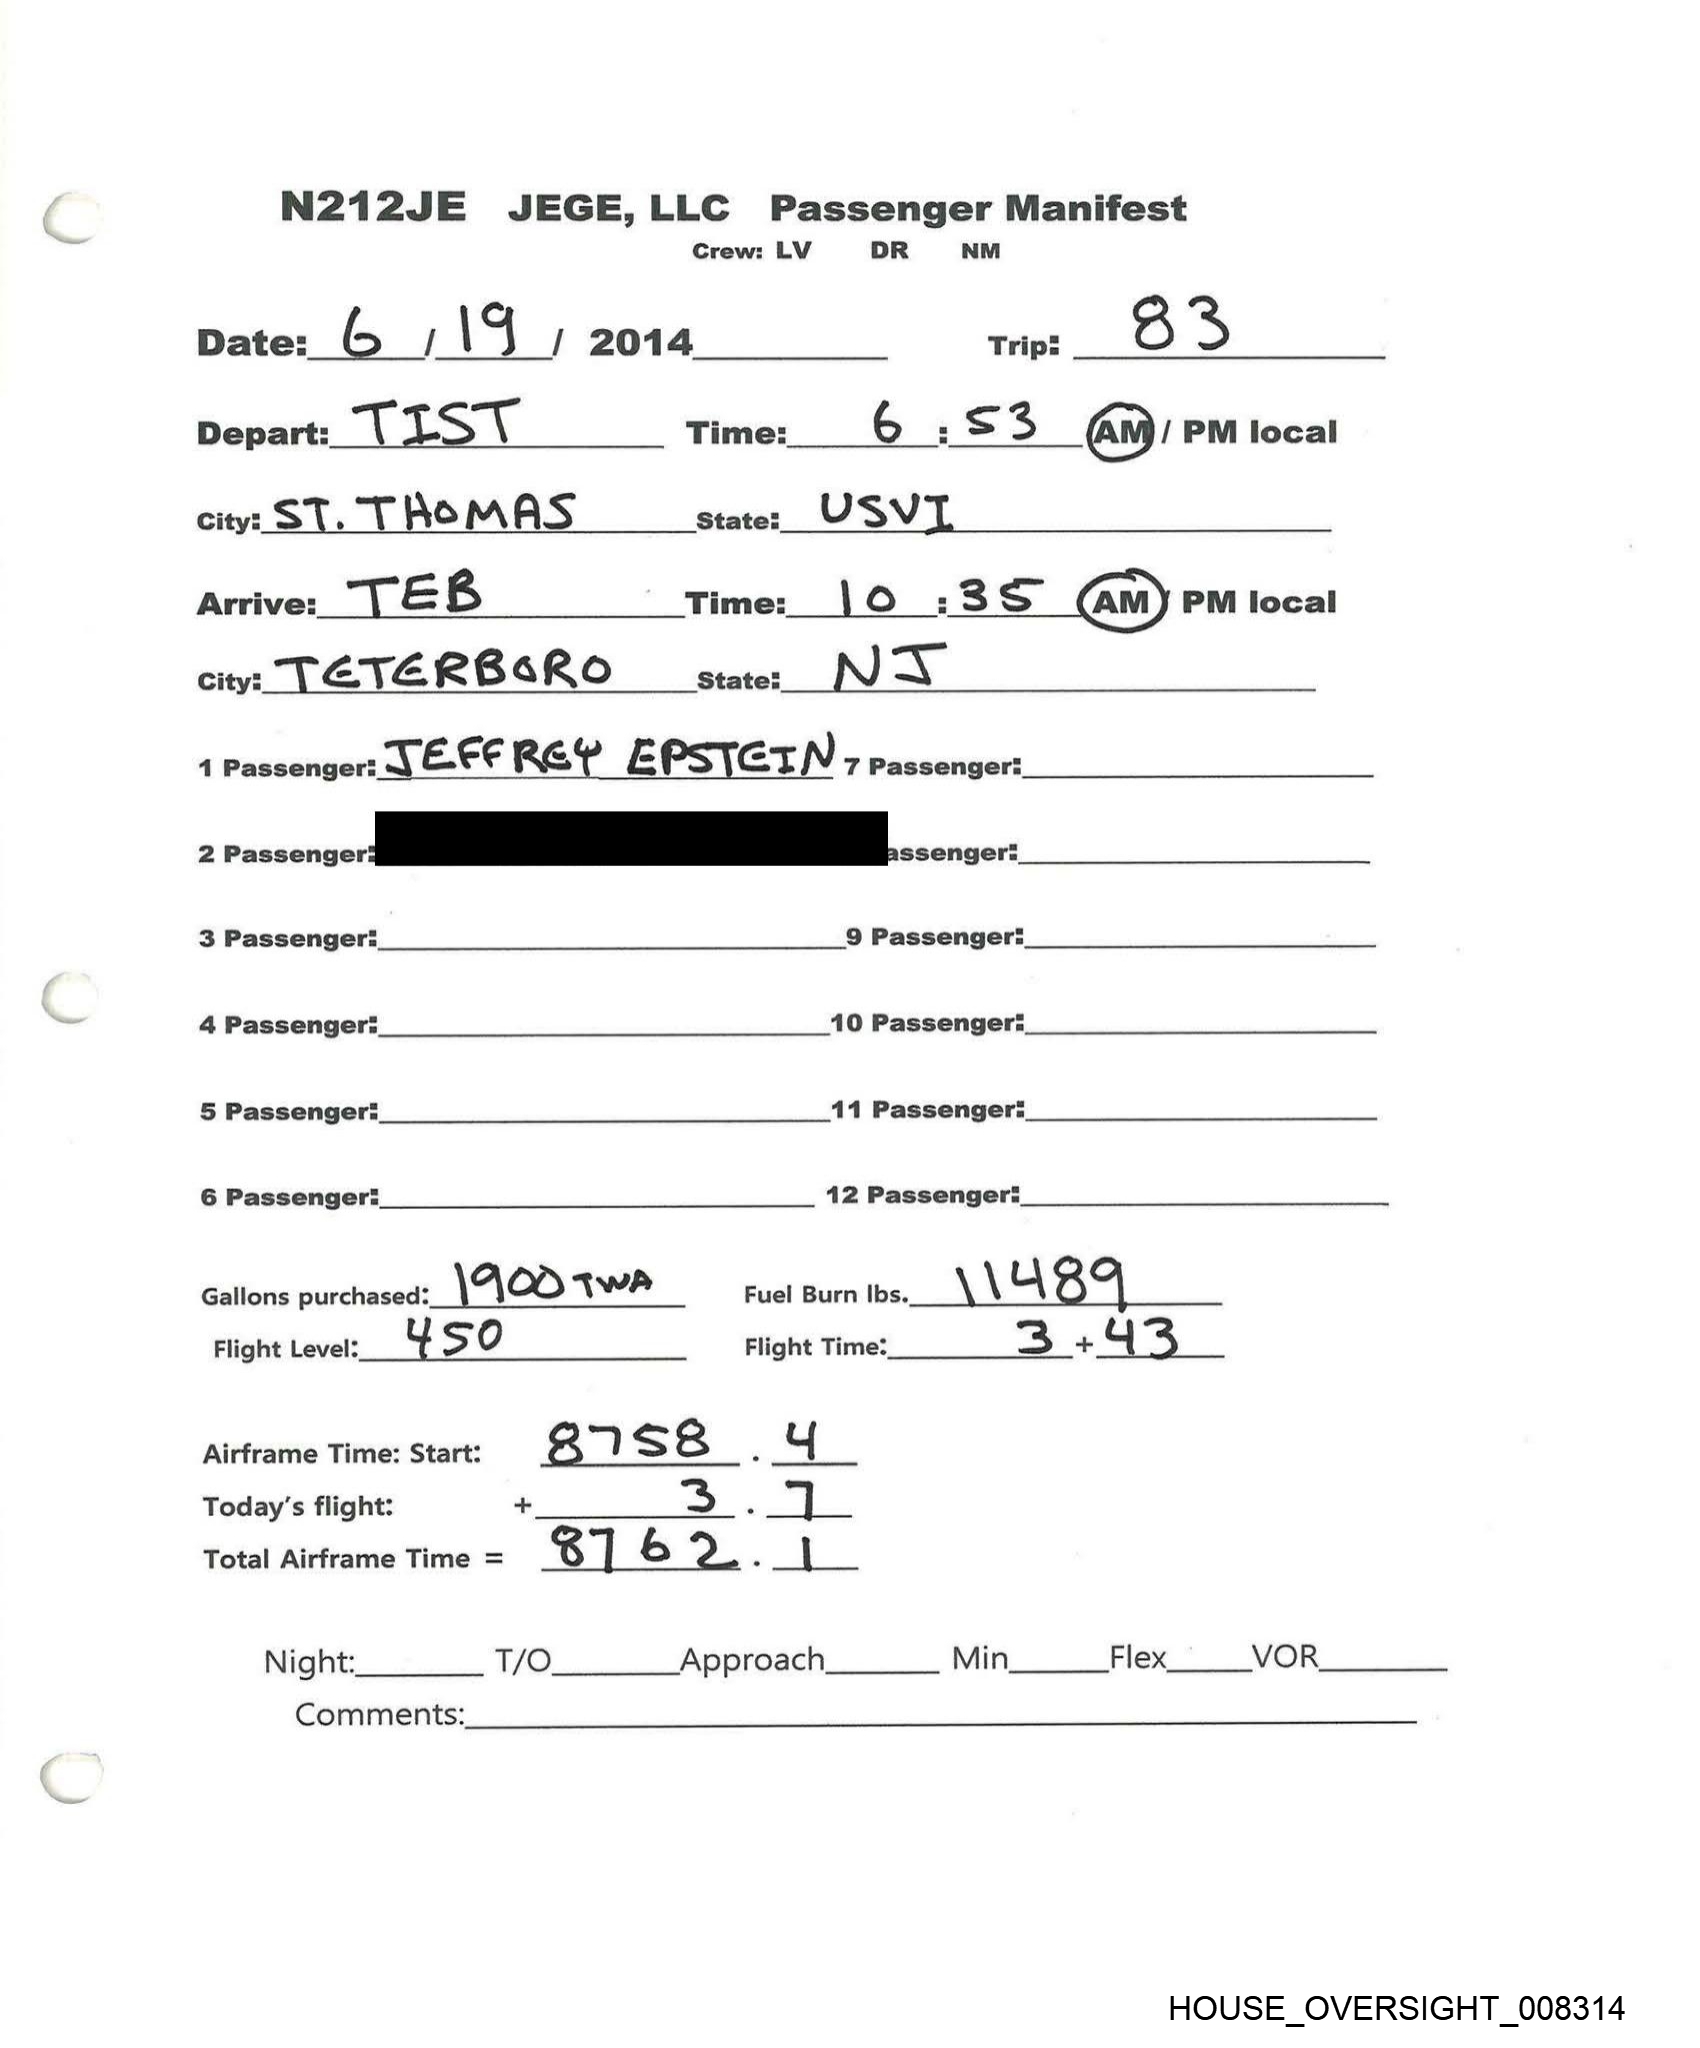 N212JE JEGE, LLC Passenger Manifest
Crew: LV DR NM
Date: 6 / 19 / 2014 Trip: 83
Depart: TIST Time: 6 : 53 AM / PM local
City: ST. THOMAS State: USVI
Arrive: TEB Time: 10 : 35 AM / PM local
City: TETERBORO State: NJ
1 Passenger: JEFFREY EPSTEIN 7 Passenger:
2 Passenger: assenger:
3 Passenger: 9 Passenger:
4 Passenger: 10 Passenger:
5 Passenger: 11 Passenger:
6 Passenger: 12 Passenger:
Gallons purchased: 1900 TWA Fuel Burn lbs. 11489
Flight Level: 450 Flight Time: 3 + 43
Airframe Time: Start: 8758 . 4
Today's flight: + 3 . 7
Total Airframe Time = 8762 . 1
Night: T/O Approach Min Flex VOR
Comments:
HOUSE_OVERSIGHT_008314